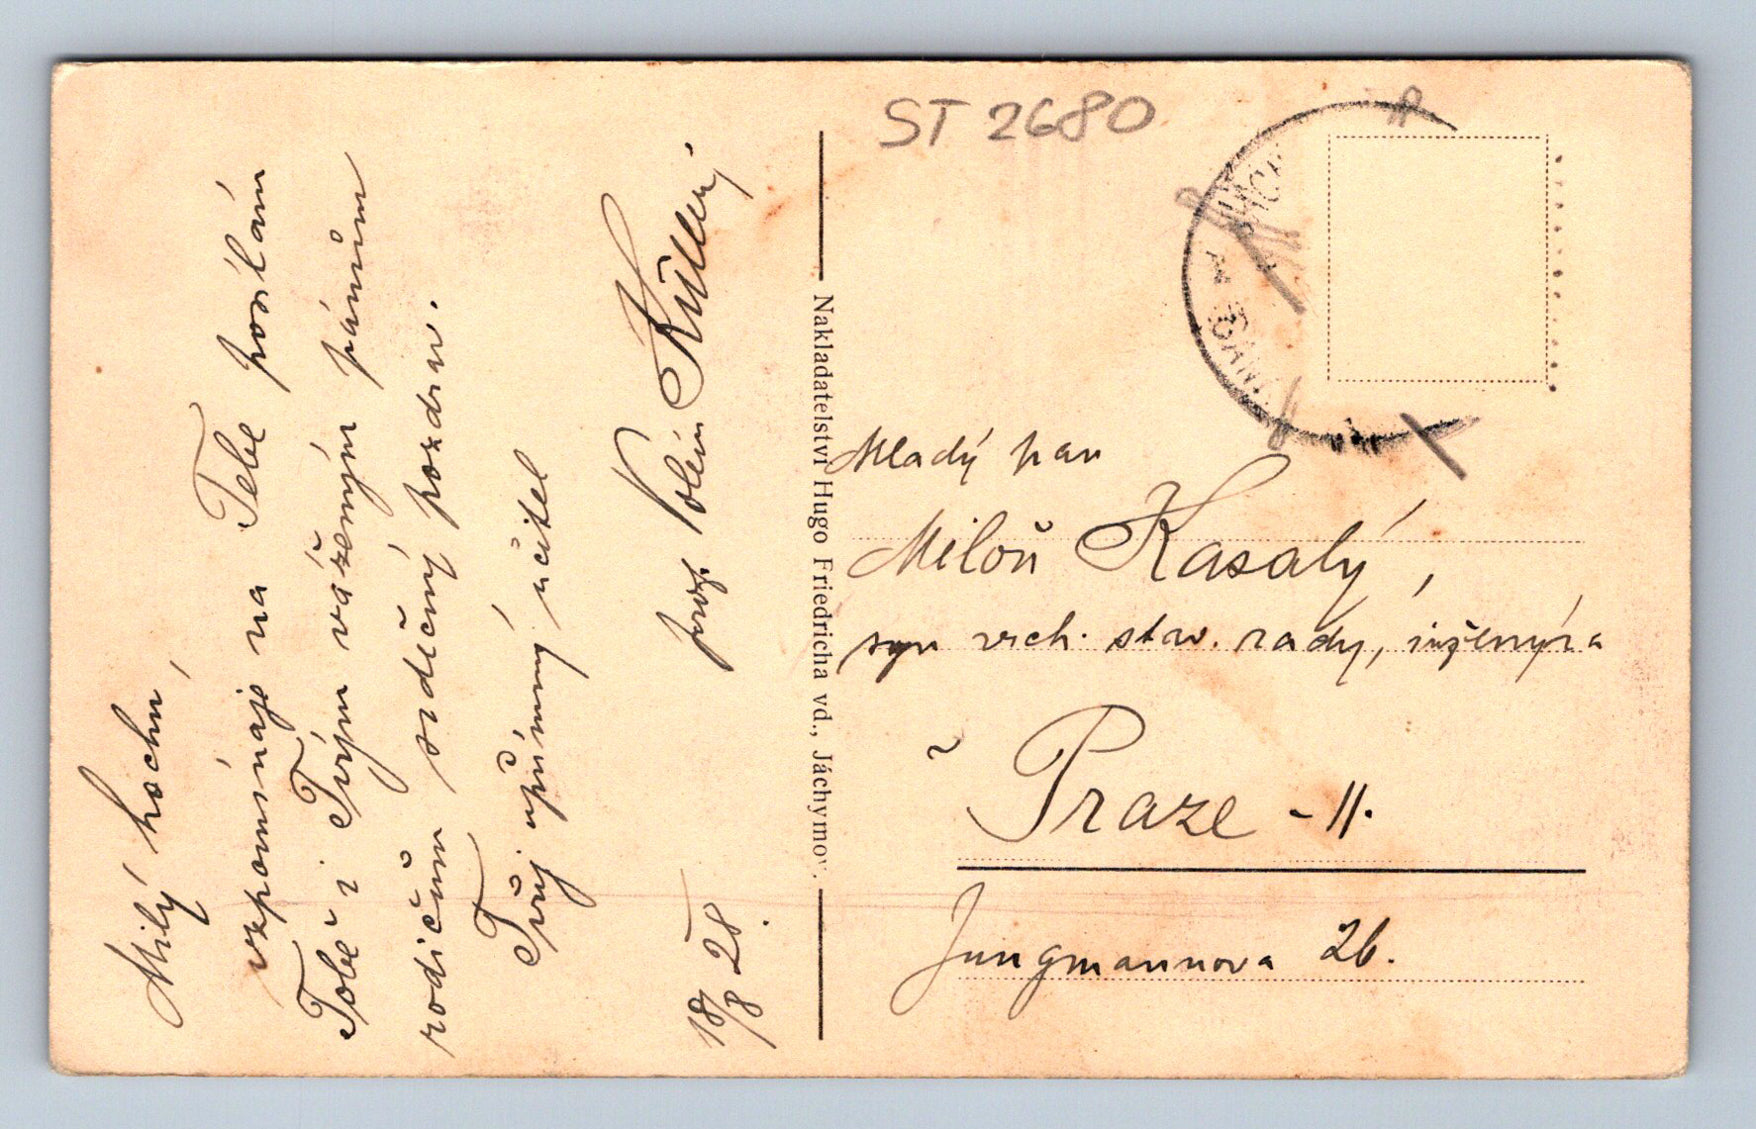 Milý hochu,
vzpomínaje na Tebe posílám
Tobě i Tvým váženým pánům
rodičům srdečný pozdrav.
Tvůj upřímný učitel
prof.
18/8 28.
Nakladatelství Hugo Friedricha vd., Jáchymov.
ST 2680
Mladý pan
Miloš Kasalý,
syn vrch. stav. rady, inženýra
v
Praze - II.
Jungmannova 26.